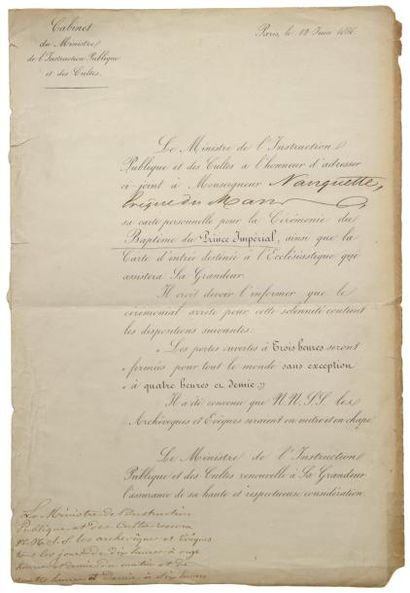 Cabinet
du Ministre
de l'Instruction Publique
et des Cultes.
Paris, le 12 Juin 1856.
Le Ministre de l'Instruction
Publique et des Cultes a l'honneur d'adresser
ci-joint à Monseigneur Nanquette,
Evêque du Mans
sa carte personnelle pour la Cérémonie du
Baptême du Prince Impérial, ainsi que la
Carte d'entrée destinée à l'Ecclésiastique qui
assistera Sa Grandeur.
Il croit devoir l'informer que le
cérémonial arrêté pour cette solennité contient
les dispositions suivantes.
« Les portes ouvertes à Trois heures seront
« fermées pour tout le monde sans exception
« à quatre heures et demie. »
Il a été convenu que N.N.S.S. les
Archevêques et Evêques seraient en mitre et en chape.
Le Ministre de l'Instruction
Publique et des Cultes renouvelle à Sa Grandeur
l'assurance de sa haute et respectueuse considération.
Le Ministre de l'Instruction
Publique et des Cultes recevra
N.N.S.S. les archevêques et Evêques
tous les jours de dix heures à onze
heures et demie du matin et de
heures et demie à six heures